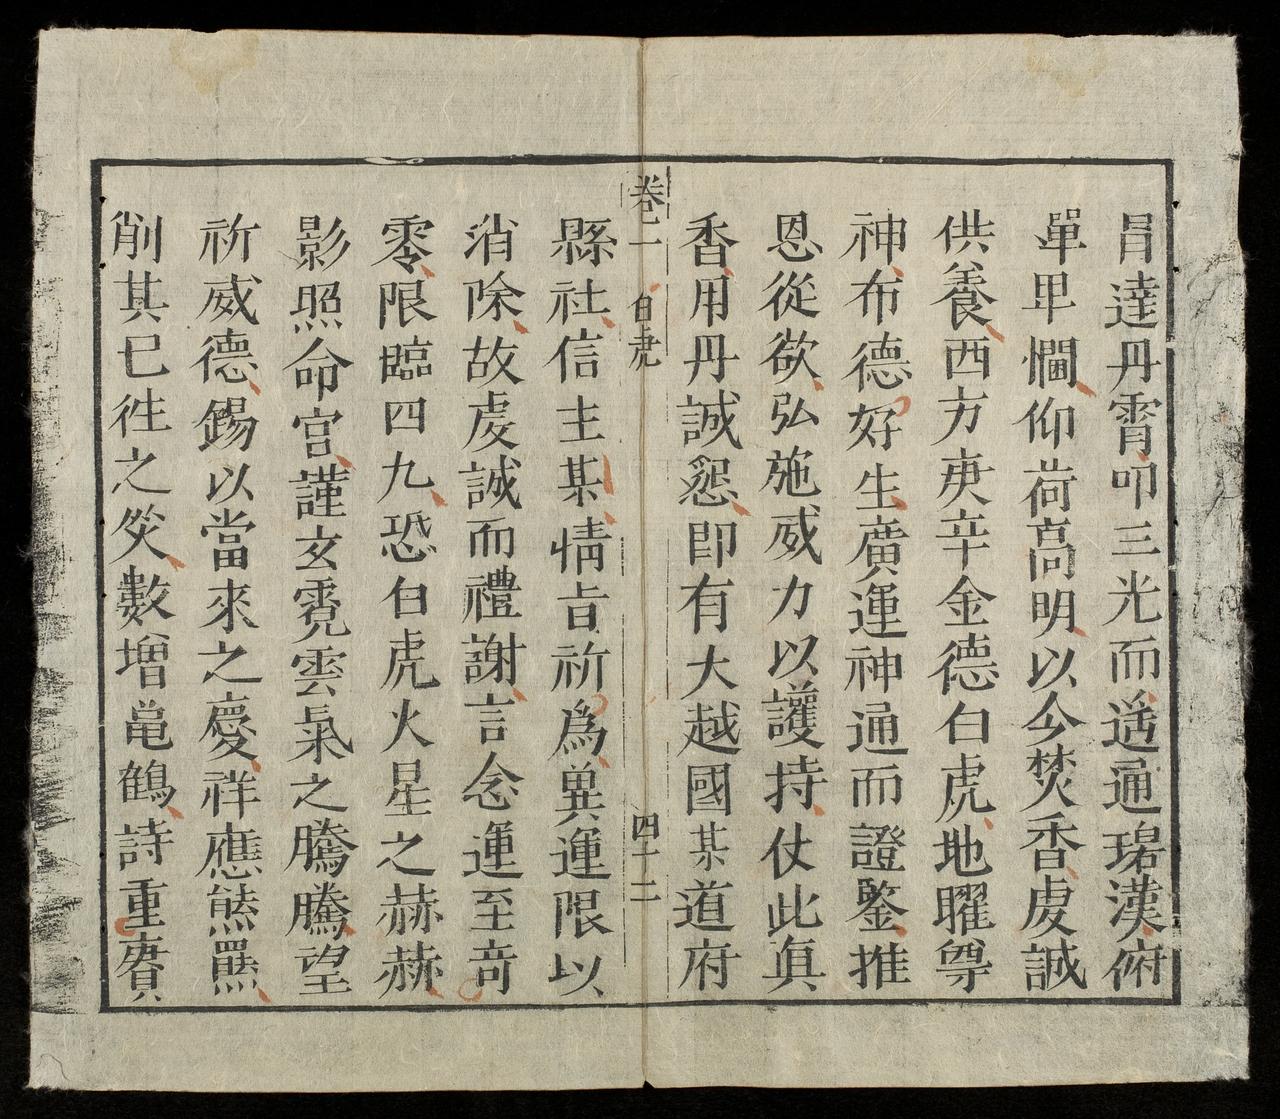 冐達丹霄叩三光而遥通琩漢俯
單卑悃仰荷高明以今焚香虔誠
供養西方庚辛金德白虎地曜尊
神布德好生廣運神通而證鑒推
恩從欲弘施威力以護持仗此真
香用丹誠懇即有大越國某道府
卷二 白虎 四十二
縣社信主某情旨祈為巽運限以
消除故虔誠而禮謝言念運至奇
零限臨四九恐白虎火星之赫赫
影照命宫謹玄霓雲氣之騰騰望
祈威德錫以當來之慶祥應熊羆
削其已徃之災數增黿鶴詩重賡